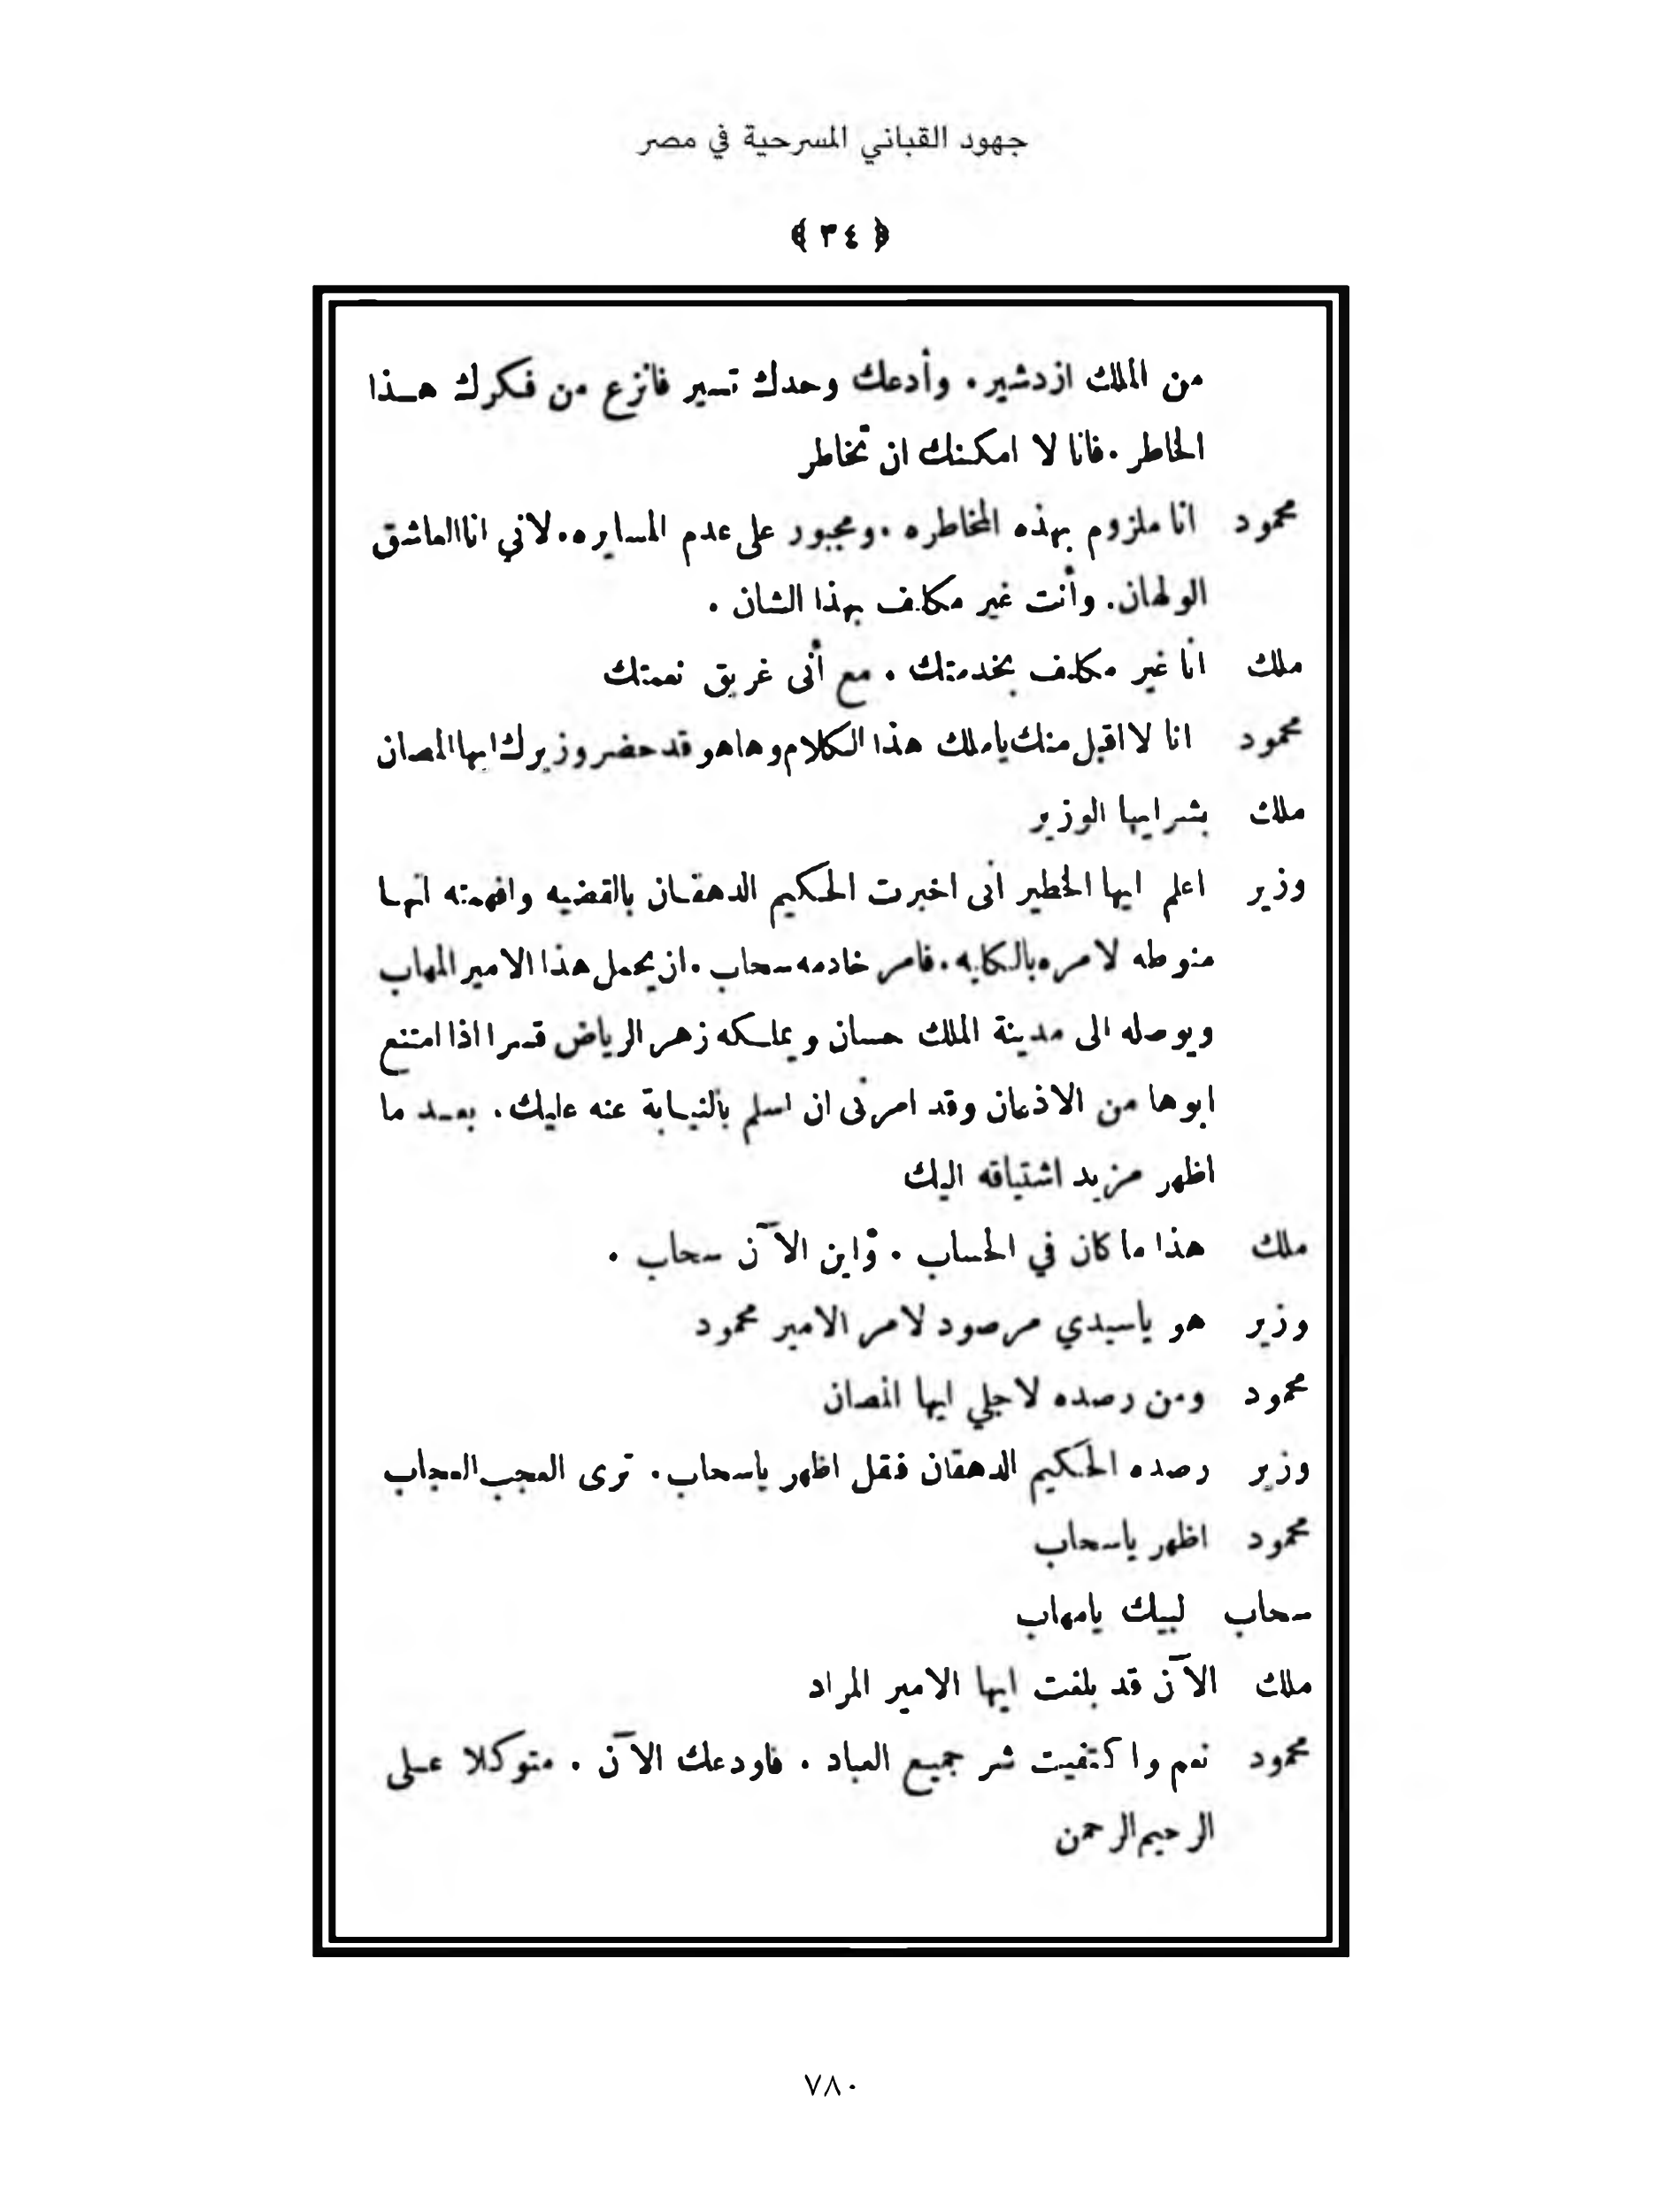 جهود القباني المسرحية في مصر
﴿ ٣٤ ﴾
من الملك ازدشير . وأدعك وحدك تسير فانزع من فكرك هذا
الخاطر . فانا لا امكنك ان تخاطر
محمود انا ملزوم بهذه المخاطره . ومجبور على عدم المسايره . لاني انا العاشق
الولهان . وأنت غير مكلف بهذا الشان .
ملك انا غير مكلف بخدمتك . مع أنى غريق نعمتك
محمود انا لا اقبل منك يا ملك هذا الكلام وها هو قد حضر وزيرك ايها المصان
ملك بشر ايها الوزير
وزير اعلم ايها الخطير انى اخبرت الحكيم الدهقان بالقضيه وافهمته انها
منوطه لامره بالكليه . فامر خادمه سحاب . ان يحمل هذا الامير المهاب
ويوصله الى مدينة الملك حسان ويملكه زهر الرياض قسرا اذا امتنع
ابوها من الاذعان وقد امرنى ان اسلم بالنيابة عنه عليك . بعد ما
اظهر مزيد اشتياقه اليك
ملك هذا ما كان في الحساب . واين الآن سحاب .
وزير هو ياسيدي مرصود لامر الامير محمود
محمود ومن رصده لاجلي ايها المصان
وزير رصده الحكيم الدهقان فقل اظهر ياسحاب . ترى العجب العجاب
محمود اظهر ياسحاب
سحاب لبيك يامهاب
ملك الآن قد بلغت ايها الامير المراد
محمود نعم واكتفيت شر جميع العباد . فاودعك الآن . متوكلا على
الرحيم الرحمن
٧٨٠